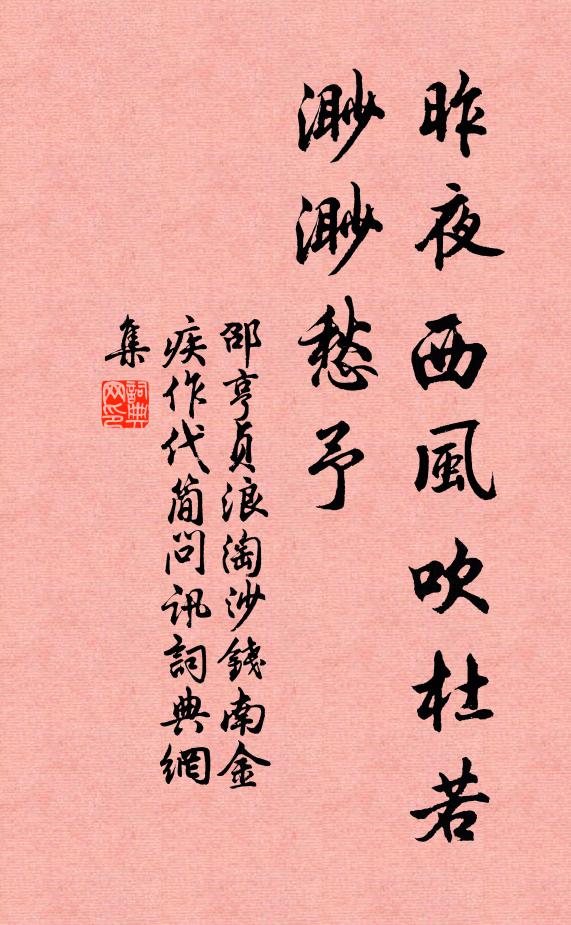 昨夜西風吹杜若
渺渺愁予
邵亨貞浪淘沙錢南金
疾作代簡問訊詞典網
集
詞典網印